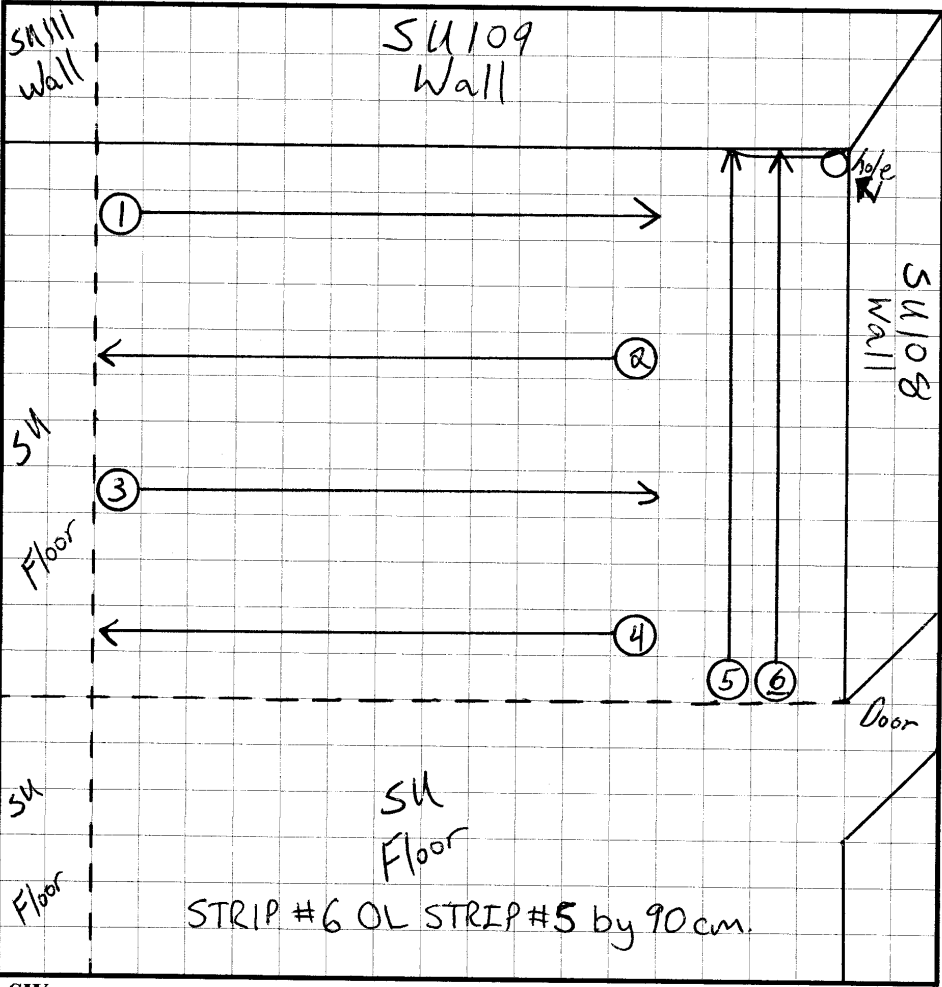 SU111
Wall
SU109
Wall
hole
SU108
Wall
1
2
3
4
5
6
SU
Floor
Door
SU
Floor
SU
Floor
STRIP #6 OL STRIP #5 by 90 cm.